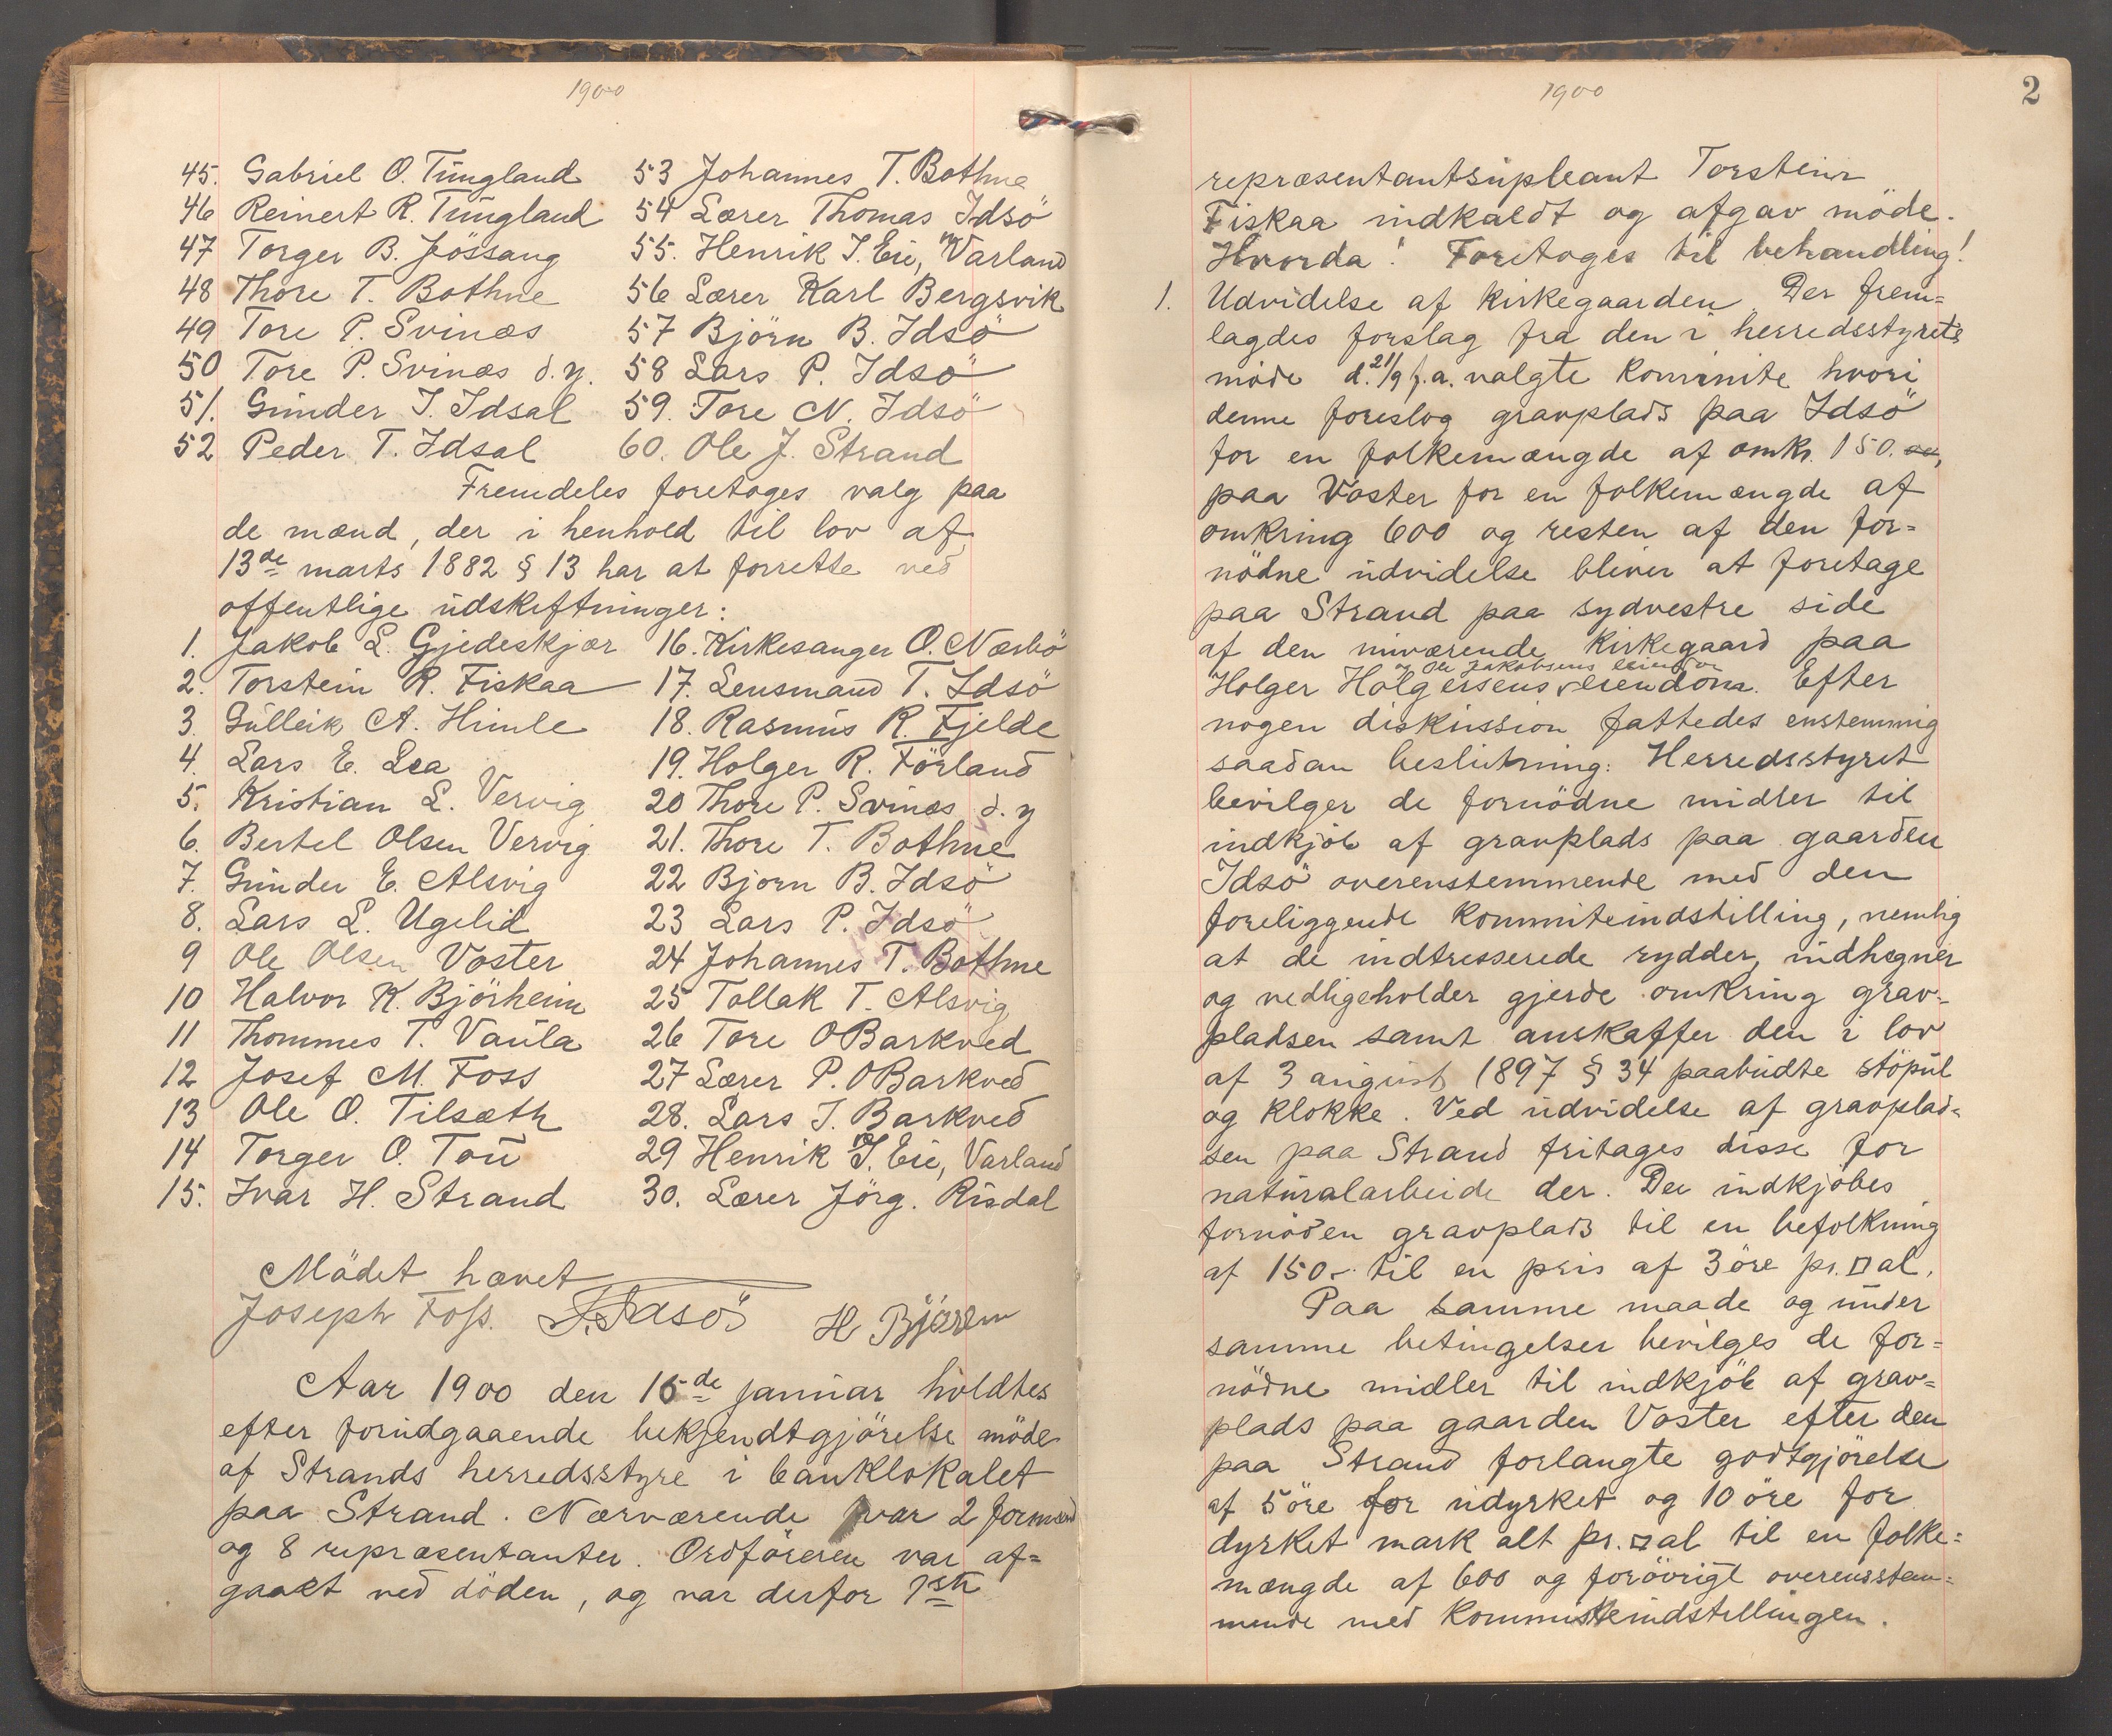 1900
45. Gabriel O. Tungland
46 Reinert R. Tungland
47 Torger B. Jössang
48 Thore T. Bothne
49 Tore P. Svinæs
50 Tore P. Svinæs d. y.
51. Gunder I. Idsal
52 Peder T. Idsal
53 Johannes T. Bothne
54 Lærer Thomas Idsö
55. Henrik I. Eie, Varland
56 Lærer Karl Bergsvik
57 Björn B. Idsö
58 Lars P. Idsö
59. Tore N. Idsö
60. Ole J. Strand
Fremdeles foretoges valg paa
de mænd, der i henhold til lov af
13de marts 1882 § 13 har at forrette ved
offentlige udskiftninger:
1. Jakob L. Gjedeskjær
2. Torstein R. Fiskaa
3. Gulleik A. Himle
4. Lars E. Lea
5. Kristian L. Vervig
6. Bertel Olsen Vervig
7. Gunder E. Alsvig
8. Lars L. Ugelid
9 Ole Olsen Voster
10 Halvor K. Björheim
11 Thommes T. Vaula
12 Josef M. Foss
13 Ole O. Tilsæth
14 Torger O. Tou
15. Ivar H. Strand
16. Kirkesanger O. Næsbö
17. Lensmand T. Idsö
18. Rasmus R. Fjelde
19. Holger R. Förland
20 Thore P. Svinæs d. y
21. Thore T. Bothne
22 Bjorn B. Idsö
23 Lars P. Idsö
24 Johannes T. Bothne
25 Tollak T. Alsvig
26 Tore O Barkved
27 Lærer P. O Barkved
28. Lars I. Barkved
29 Henrik I. Eie, Varland
30. Lærer Jörg. Risdal
Mödet hævet
Joseph Foss. T. Idsö H Björem
Aar 1900 den 15de januar holdtes
efter forudgaaende bekjendtgjörelse möde
af Strands herredsstyre i banklokalet
paa Strand. Nærværende var 2 formænd
og 8 repræsentanter. Ordföreren var af=
gaaet ved döden, og var derfor 1ste
1900
2
repræsentantsupleant Torstein
Fiskaa indkaldt og afgav möde.
Hvorda! Foretoges til behandling!
1. Udvidelse af kirkegaarden. Der frem=
lagdes forslag fra den i herredsstyrets
möde d. 21/9 f.a. valgte Kommite hvori
denne foreslog gravplads paa Idsö
for en folkemængde af omkr. 150.
paa Voster for en folkemængde af
omkring 600 og resten af den for=
nödne udvidelse bliver at foretage
paa Strand paa sydvestre side
af den nuværende Kirkegaard paa
og Ole Jakobsens eiendom
Holger Holgersens eiendom. Efter
nogen diskussion fattedes enstemmig
saadan beslutning: Herredsstyret
bevilger de fornödne midler til
indkjöb af gravplads paa gaarden
Idsö overenstemmende med den
foreliggende Kommiteindstilling, nemlig
at de indtresserede rydder, indhegner
og vedligeholder gjerde omkring grav=
pladsen samt anskaffer den i lov
af 3 august 1897 § 34 paabudte stöpul
og klokke. Ved udvidelse af gravplad=
sen paa Strand fritages disse for
naturalarbeide der. Der indkjöbes
fornöden gravplads til en befolkning
af 150.- til en pris af 3 öre pr. □ al.
Paa samme maade og under
samme betingelser bevilges de for=
nödne midler til indkjöb af grav=
plads paa gaarden Voster efter den
paa Strand forlangte godtgjörelse
af 5 öre for udyrket og 10 öre for
dyrket mark alt pr. □ al til en folke=
mængde af 600 og forövrigt overensstem=
mende med Kommiteindstillingen.